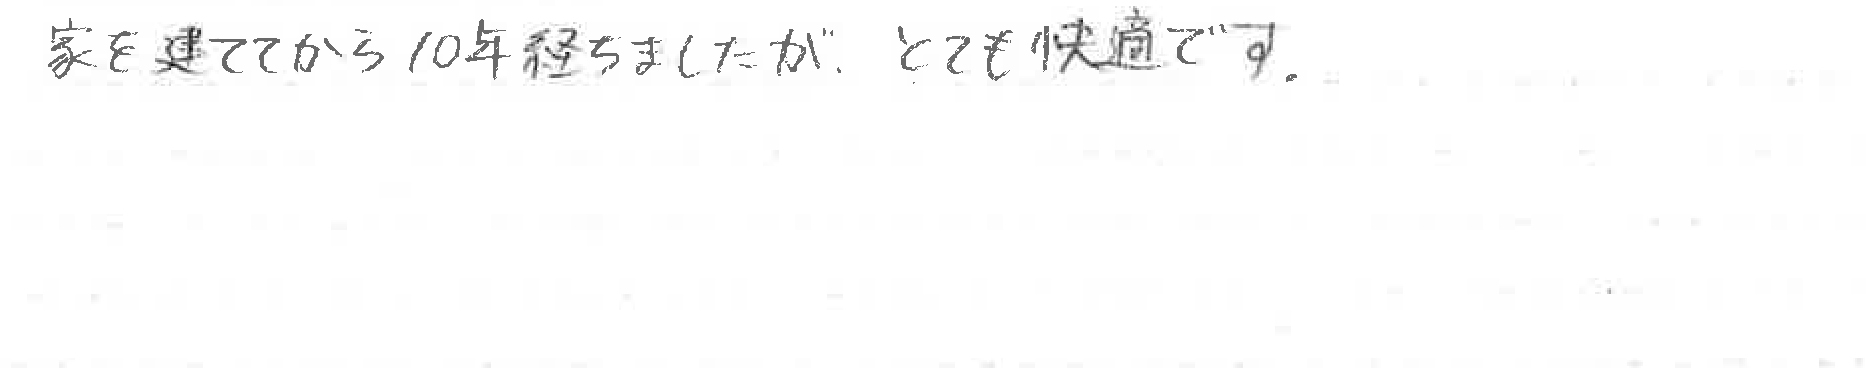 家を建ててから10年経ちましたが、とても快適です。